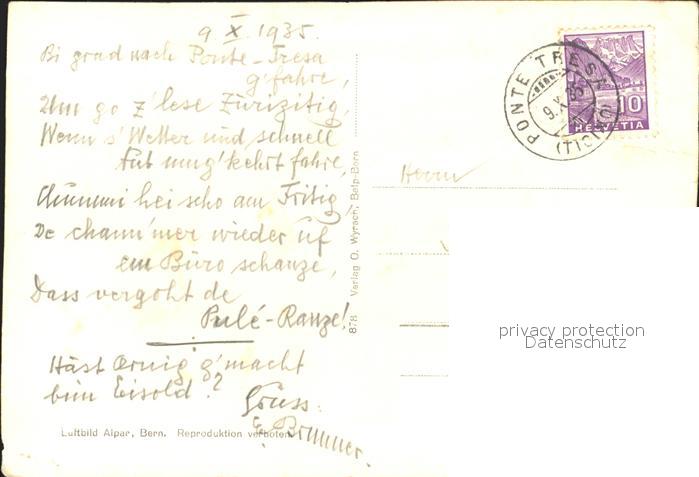 9 X. 1935.
Bi grad nach Ponte-Tresa
g'fahre,
Um go z'lese Zürizitig,
Wenn s'Wetter und schnell
tut umg'kehrt fahre,
Chummi hei scho am Fritig,
De chann'mer wieder uf
em Büro schanze,
Dass vergoht de
Pulé-Ranze!
Häst Ornig g'macht
bim Eisold?
Gruss:
E. Brunner.
Luftbild Alpar, Bern. Reproduktion verboten.
878 Verlag O. Wyrsch, Belp-Bern
PONTE TRESA
9.X.35
(TICINO)
10
HELVETIA
Herrn
privacy protection
Datenschutz